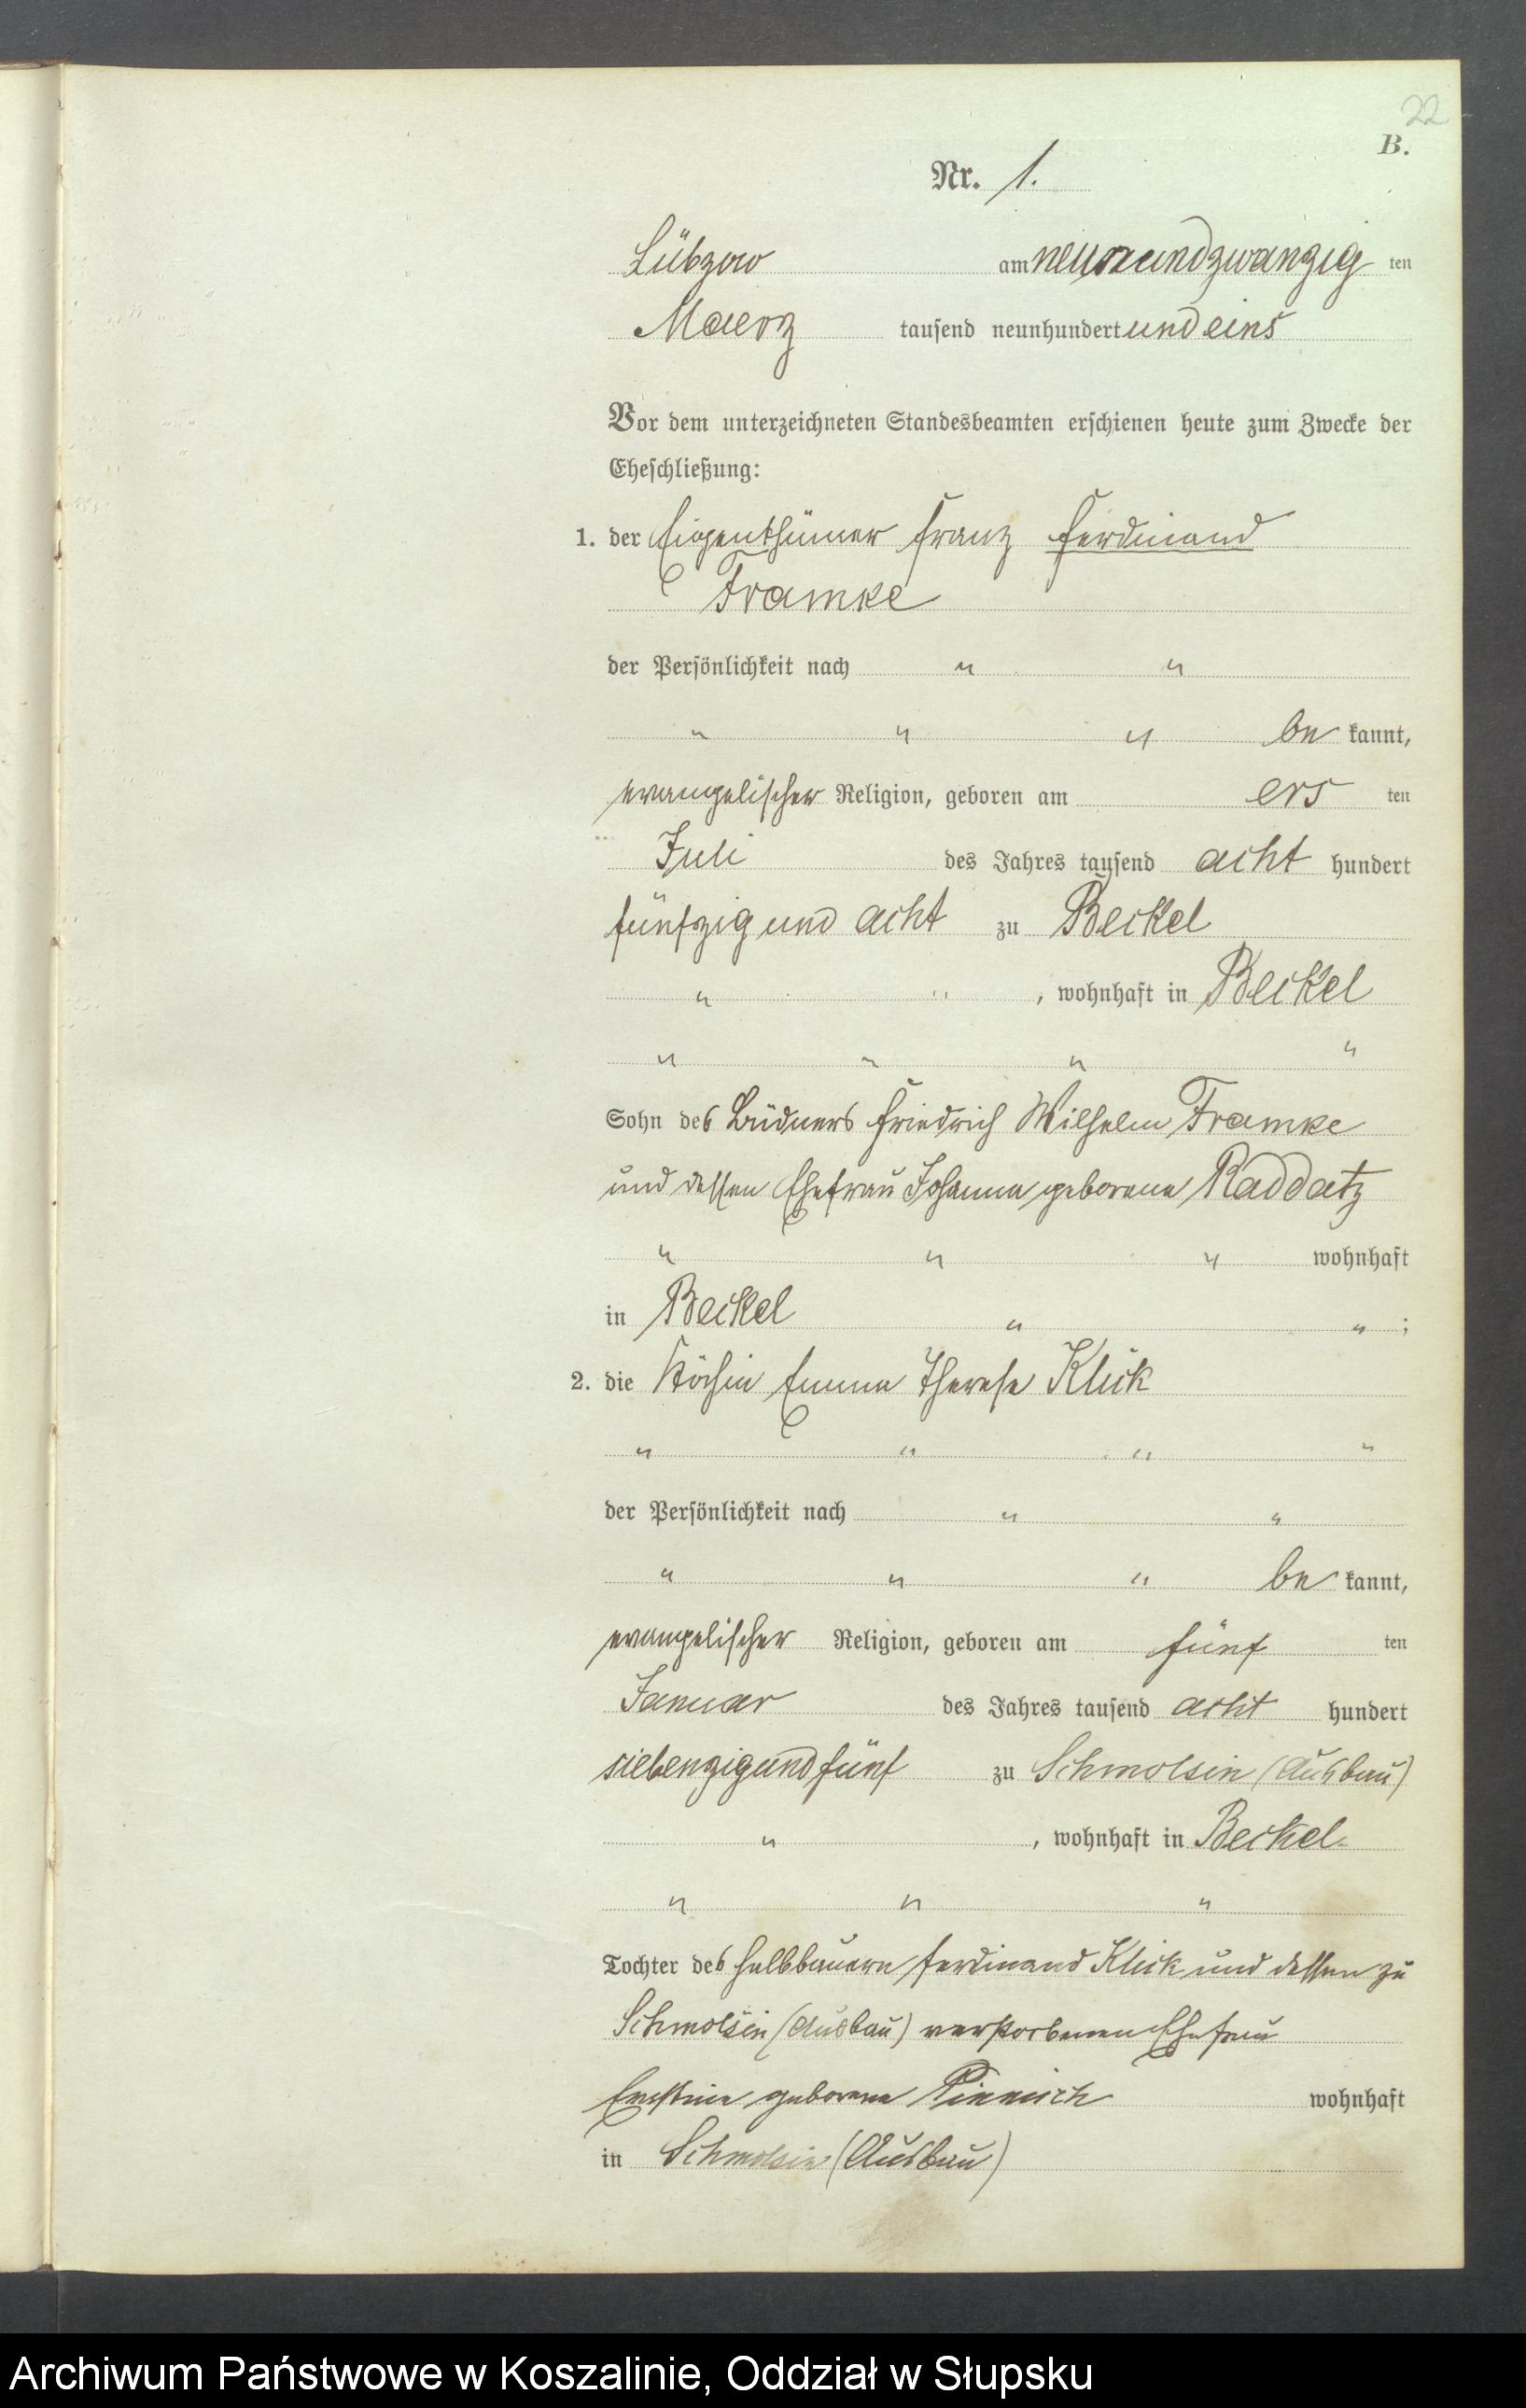 22
B.
Nr. 1.
Lübzow am neunundzwanzig ten
Maerz tausend neunhundert und eins
Vor dem unterzeichneten Standesbeamten erschienen heute zum Zwecke der
Eheschließung:
1. der Eigenthümer Franz Ferdinand
Framke
der Persönlichkeit nach " "
" " " be kannt,
evangelischer Religion, geboren am ers ten
Juli des Jahres tausend acht hundert
fünfzig und acht zu Beckel
" " , wohnhaft in Beckel
" " " "
Sohn des Büdners Friedrich Wilhelm Framke
und dessen Ehefrau Johanna geborene Raddatz
" " " wohnhaft
in Beckel " " ;
2. die Köchin Emma Therese Klick
" " " "
der Persönlichkeit nach " "
" " " be kannt,
evangelischer Religion, geboren am fünf ten
Januar des Jahres tausend acht hundert
siebenzig und fünf zu Schmolsin (Ausbau)
" , wohnhaft in Beckel
" " "
Tochter des Halbbauern Ferdinand Klick und dessen zu
Schmolsin (Ausbau) verstorbenen Ehefrau
Ernstine geborene wohnhaft
in Schmolsin (Ausbau)
Archiwum Państwowe w Koszalinie, Oddział w Słupsku